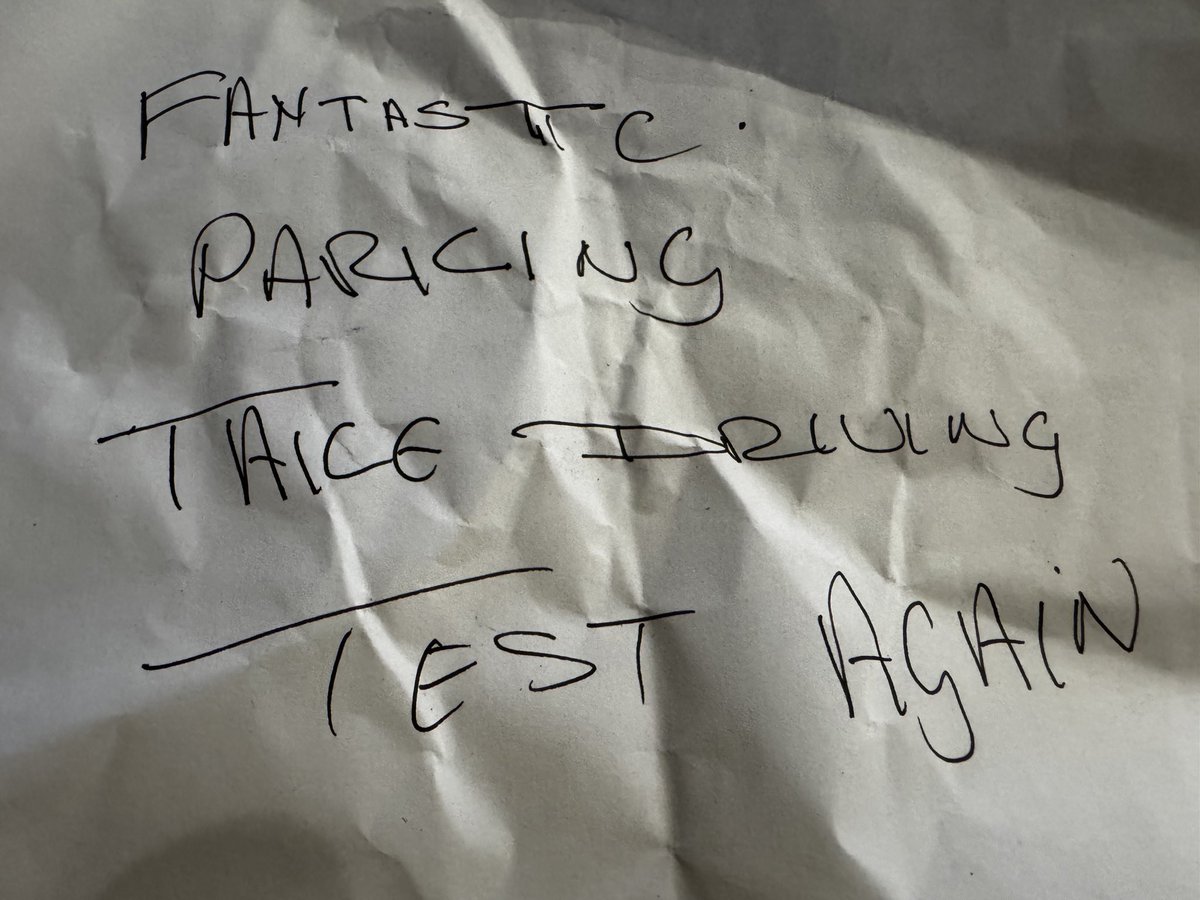 FANTASTIC.
PARKING
TAKE DRIVING
TEST AGAIN